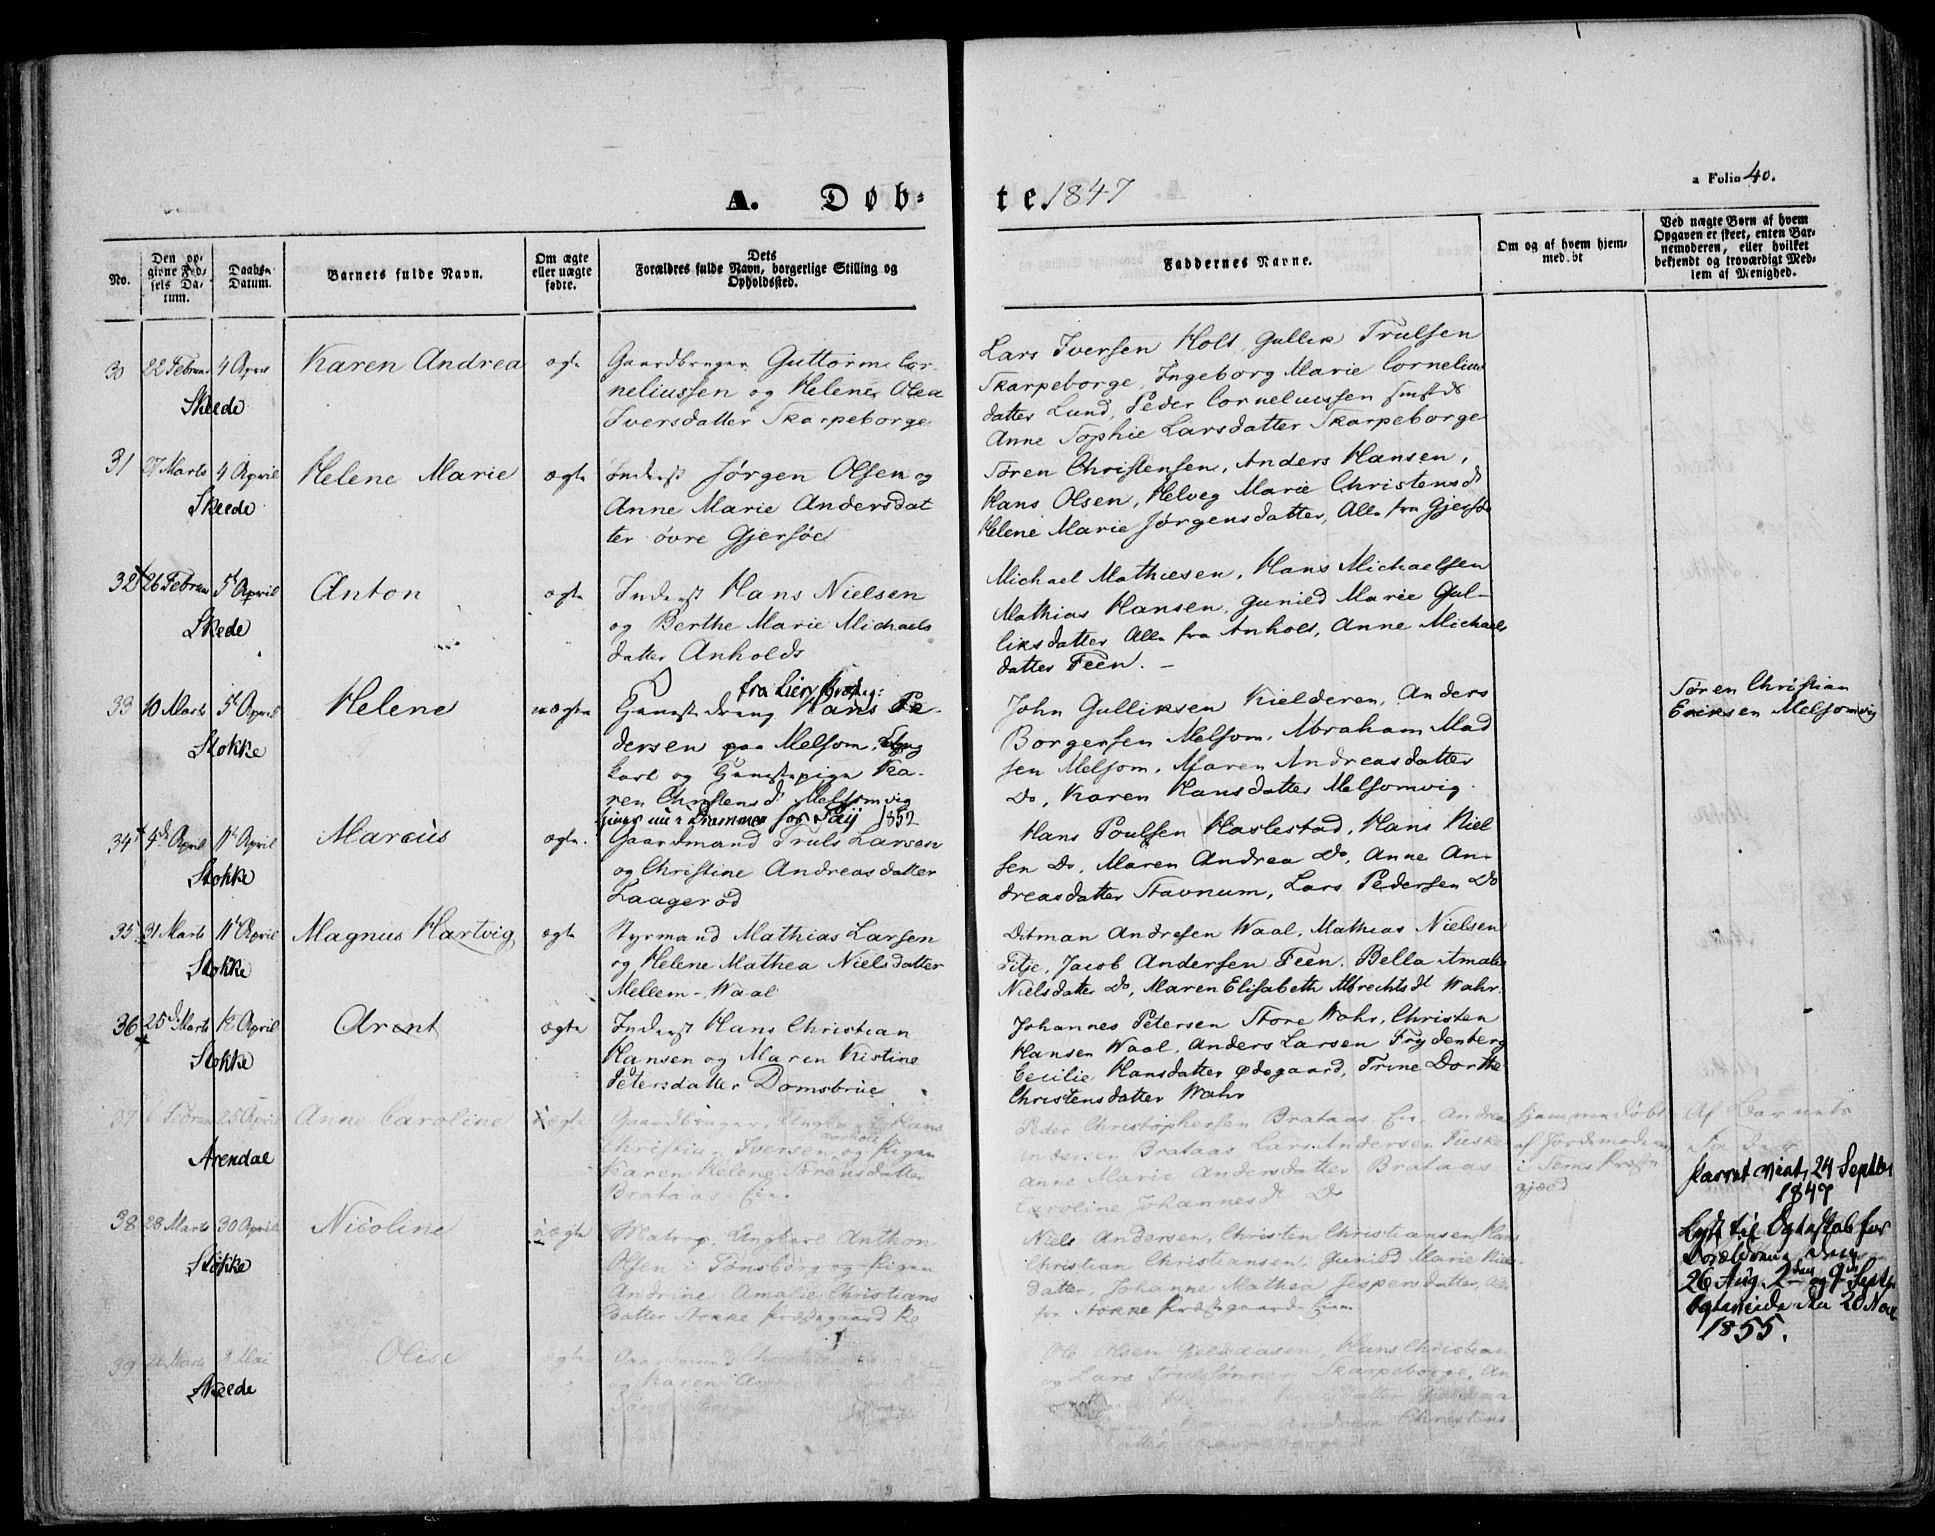 A. Døb-
te. 1847
a Folio 40.
No.
Den op-
givne Fød-
sels Da-
tum.
Daabs-
Datum.
Barnets fulde Navn.
Om ægte
eller uægte
fødte.
Dets
Forældres fulde Navn, borgerlige Stilling og
Opholdssted.
Faddernes Navne.
Om og af hvem hjem-
med bt
Ved uægte Børn af hvem
Opgaven er skeet, enten Bar-
nemoderen, eller hvilket
bekjendt og troværdigt Med-
lem af Menighed.
30 22 Februar 4 April
Skeede
Karen Andrea
ægte
Gaardbruger Guttorm Cor-
neliussen og Helene Olea
Iversdatter Skarpeborge
Lars Iversen Holt, Gullik Trulsen
Skarpeborge, Ingeborg Marie Cornelius
datter Lund, Peder Corneliussen
Anne Sophie Larsdatter Skarpeborge
31 27 Marts 4 April
Skeede
Helene Marie
ægte
Inderst Jørgen Olsen og
Anne Marie Andersdat
ter øvre Gjersøe
Søren Christensen, Anders Hansen,
Hans Olsen, Helveg Marie Christensd
Helene Marie Jørgensdatter, Alle fra Gjersøe
32 26 Februar 5t April
Skede
Anton
ægte
Inderst Hans Nielsen
og Berthe Marie Michaels
datter Anholds
Michael Mathiesen, Hans Michaelsen
Mathias Hansen, Gunild Marie Gul-
liksdatter Alle fra Anholt, Anne Michaels
datter Feen. -
33 10 Marts 5t April
Stokke
Helene
uægte
fra Lier Præsteg:
Tjenestedreng Hans Pe-
dersen paa Melsom, Ung
karl og Tjenestepige Ka-
ren Christensd. Melsomvig
1852
John Gulliksen Kielderen, Anders
Borgersen Melsom, Abraham Mad
sen Melsom, Maren Andreasdatter
Do, Karen Hansdatter Melsomvig.
Søren Christian
Eriksen Melsomvig
34 4de April 11te April
Stokke
Marcus
ægte.
Gaardmand Truls Larsen
og Christine Andreasdatter
Laagerød
Hans Poulsen Haslestad, Hans Niel
sen Do, Maren Andrea Do, Anne An-
dreasdatter Stavnum, Lars Pedersen Do
35 31 Marts 11te April
Stokke
Magnus Hartvig
ægte
Styrmand Mathias Larsen
og Helene Mathea Nielsdatter
Mellem-Waal
Ditman Andresen Waal, Mathias Nielsen
Jacob Andersen Feen. Bella Amalie
Nielsdatter Do, Maren Elisabeth Albrechtsdt Wahr.
36 25de Marts 18 April
Stokke
Arent
ægte
Inderst Hans Christian
Hansen og Maren Kistine
Petersdatter Domsbrue
Johannes Petersen Store Wahr, Christen
Hansen Waal, Anders Larsen Frydenberg
Cecilie Hansdatter Ødegaard, Trine Dorthe
Christensdatter Wahr
37 6 Februar 25 April
Arendal
Anne Caroline
uægte
Gaardbruger, Ungkarl Hans
Christian Iversen og Pigen
Karen Helene Sørensdatter
Brataas Eie.
Peder Christophersen Brataas Eie, Andrea
Andersen Brataas Lars Andersen
Anne Marie Andersdatter Brataas
Caroline Johannesdt Do
hjemmedøbt
af Jordemoderen
i Sems Præste
gjæld
Af Barnets
Fader
Barnet viet 24 Septbr
1847
38 28 Marts 30 April
Stokke
Nicoline
uægte
Matros, Ungkarl Anthon
Olsen i Tønsberg og Pigen
Andrine Amalie Christians
datter Stokke Præstegaard
Niels Andersen, Christen Christiansen Hans
Christian Christiansen, Gunild Marie Niels
datter, Johanne Mathea Jespersdatter, Alle
fra Stokke Præstegaards Eie
Lyst til Ægteskab for
Forældrene
26 Aug. 2den og 9de Septr
Egteviede den 20 Nov
1855.
39 Marts 2 Mai
Skeede
Olise
ægte
Gaardmand
og Karen
Ole Olsen, Hans Christian
og Lars Trulssønner Skarpeborge, An
Christens
datter